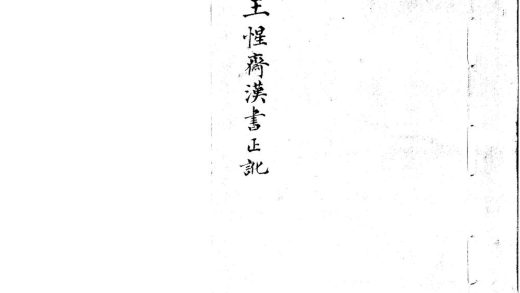 王惺齋漢書正訛